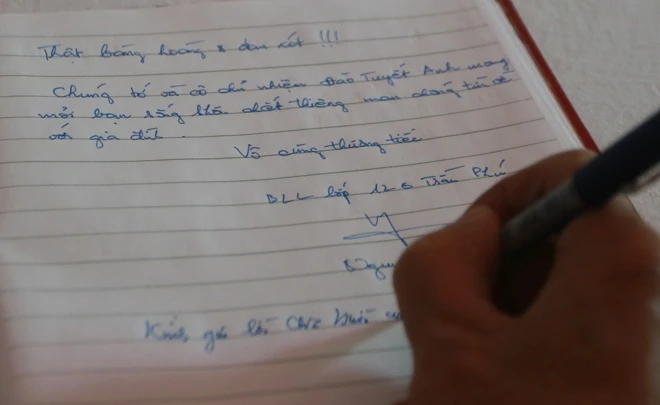 Thật bàng hoàng & đau xót !!!
Chúng tớ và cô chủ nhiệm Đào Tuyết Anh mong
mỏi bạn sống khôn chết thiêng mau chóng tìm về
với gia đình.
Vô cùng thương tiếc
BLL lớp 12 Trần Phú
Nguy
Kính gửi